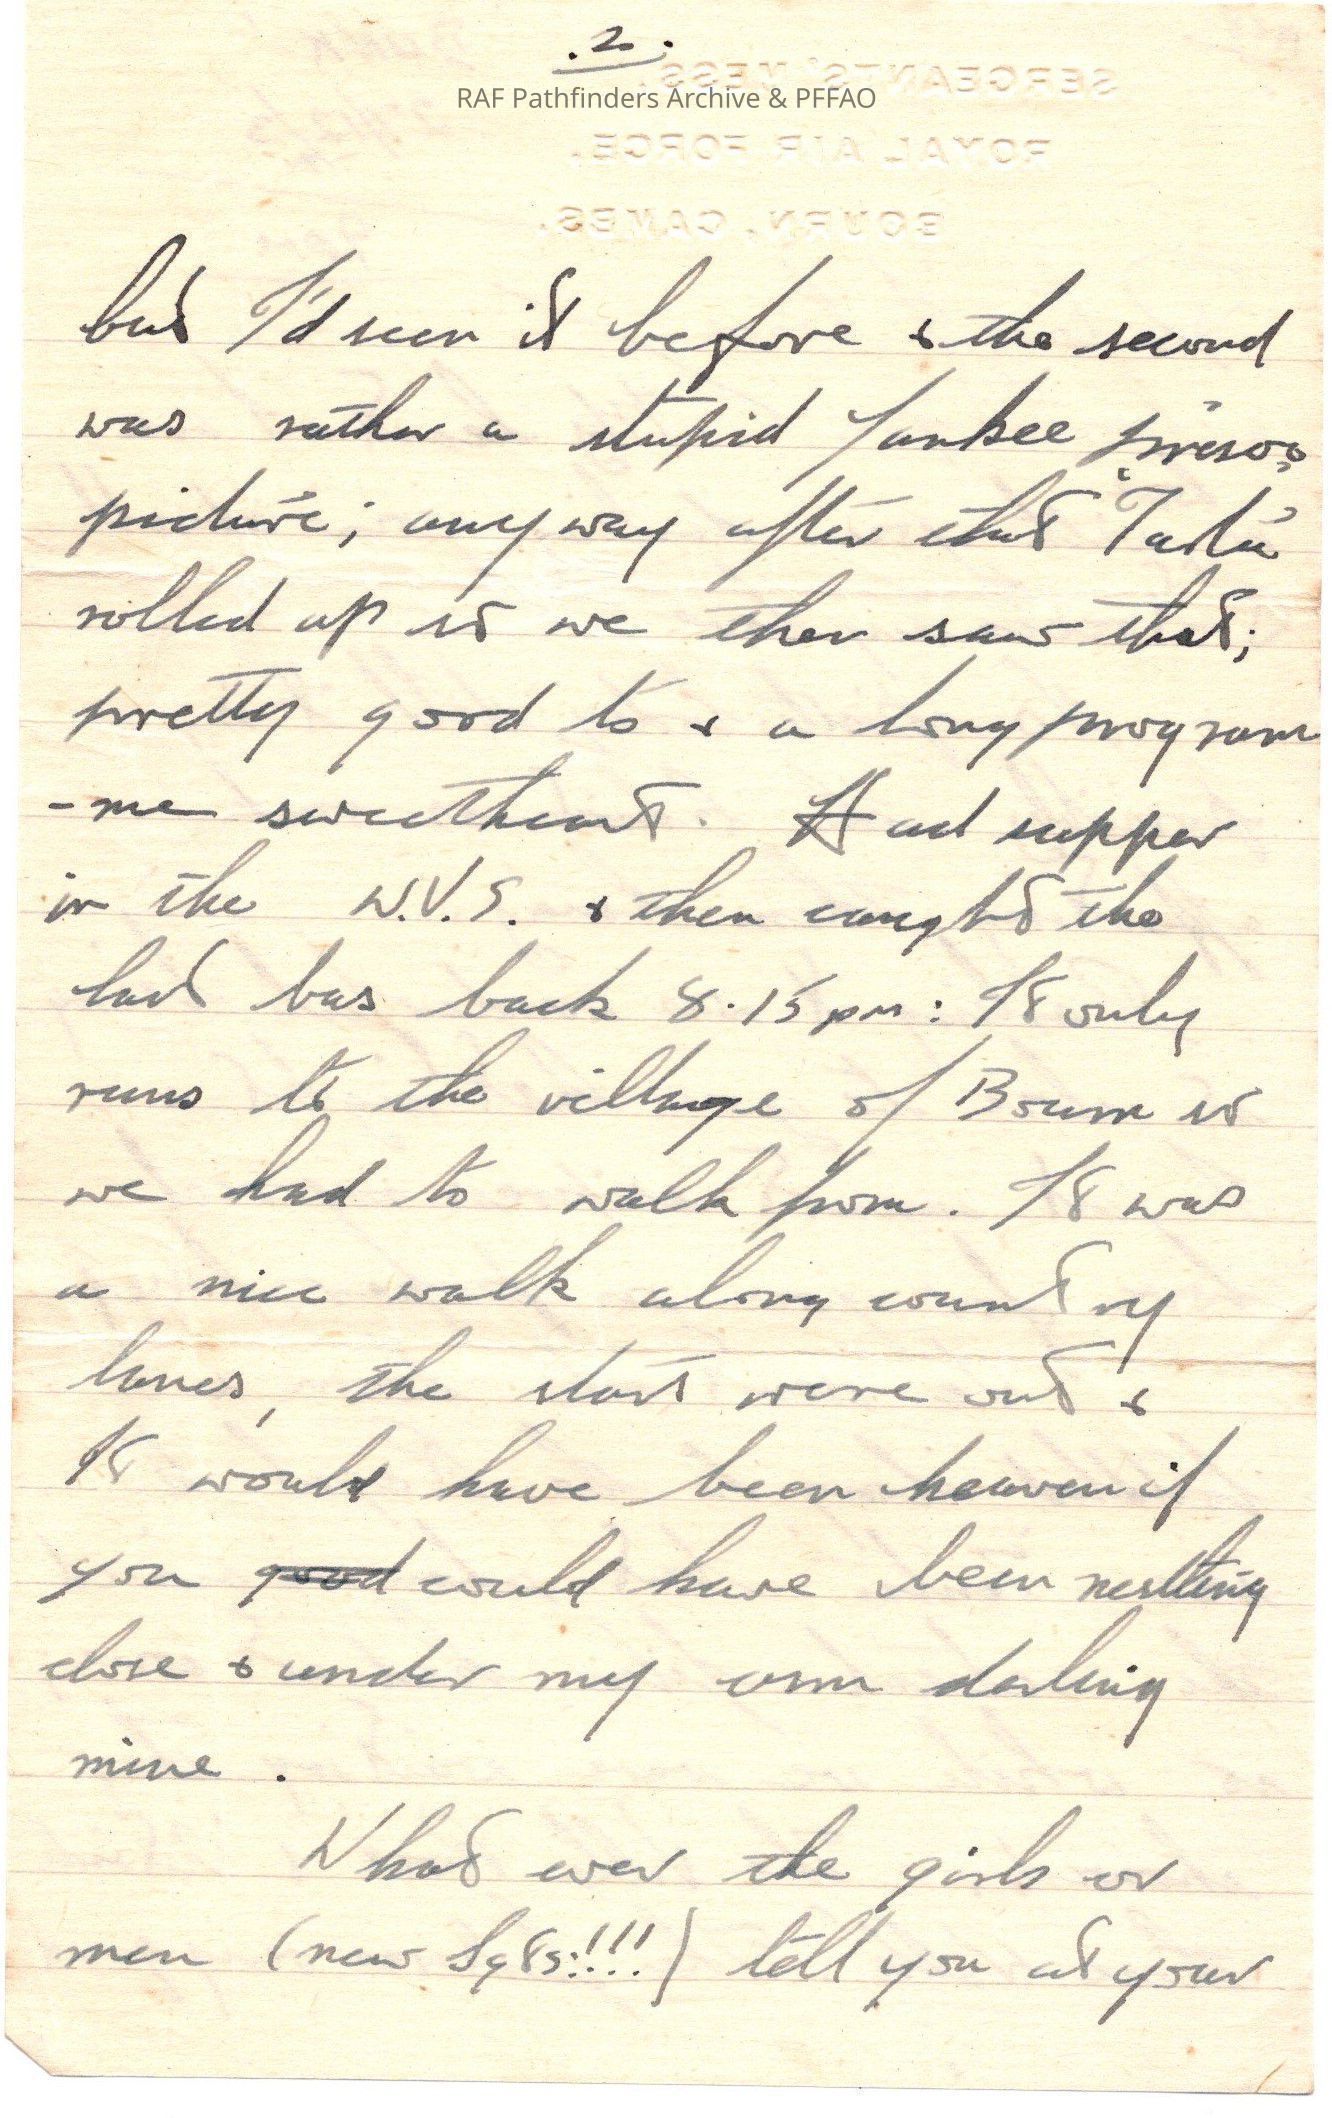 .2.
SERGEANTS' MESS,
RAF Pathfinders Archive & PFFAO
ROYAL AIR FORCE,
BOURN, CAMBS.
but I'd seen it before & the second
was rather a stupid Yankee
picture; anyway after that
rolled up so we then saw that;
pretty good to & a long program
-me sweetheart. Had supper
in the W.V.S. & then caught the
last bus back 8.15 pm: It only
runs to the village of Bourn so
we had to walk from. It was
a nice walk along country
lanes, the stars were out &
it would have been heaven if
you good could have been nestling
close & under my arm darling
mine.
What ever the girls or
men (new Sgts:!!!) tell you at your